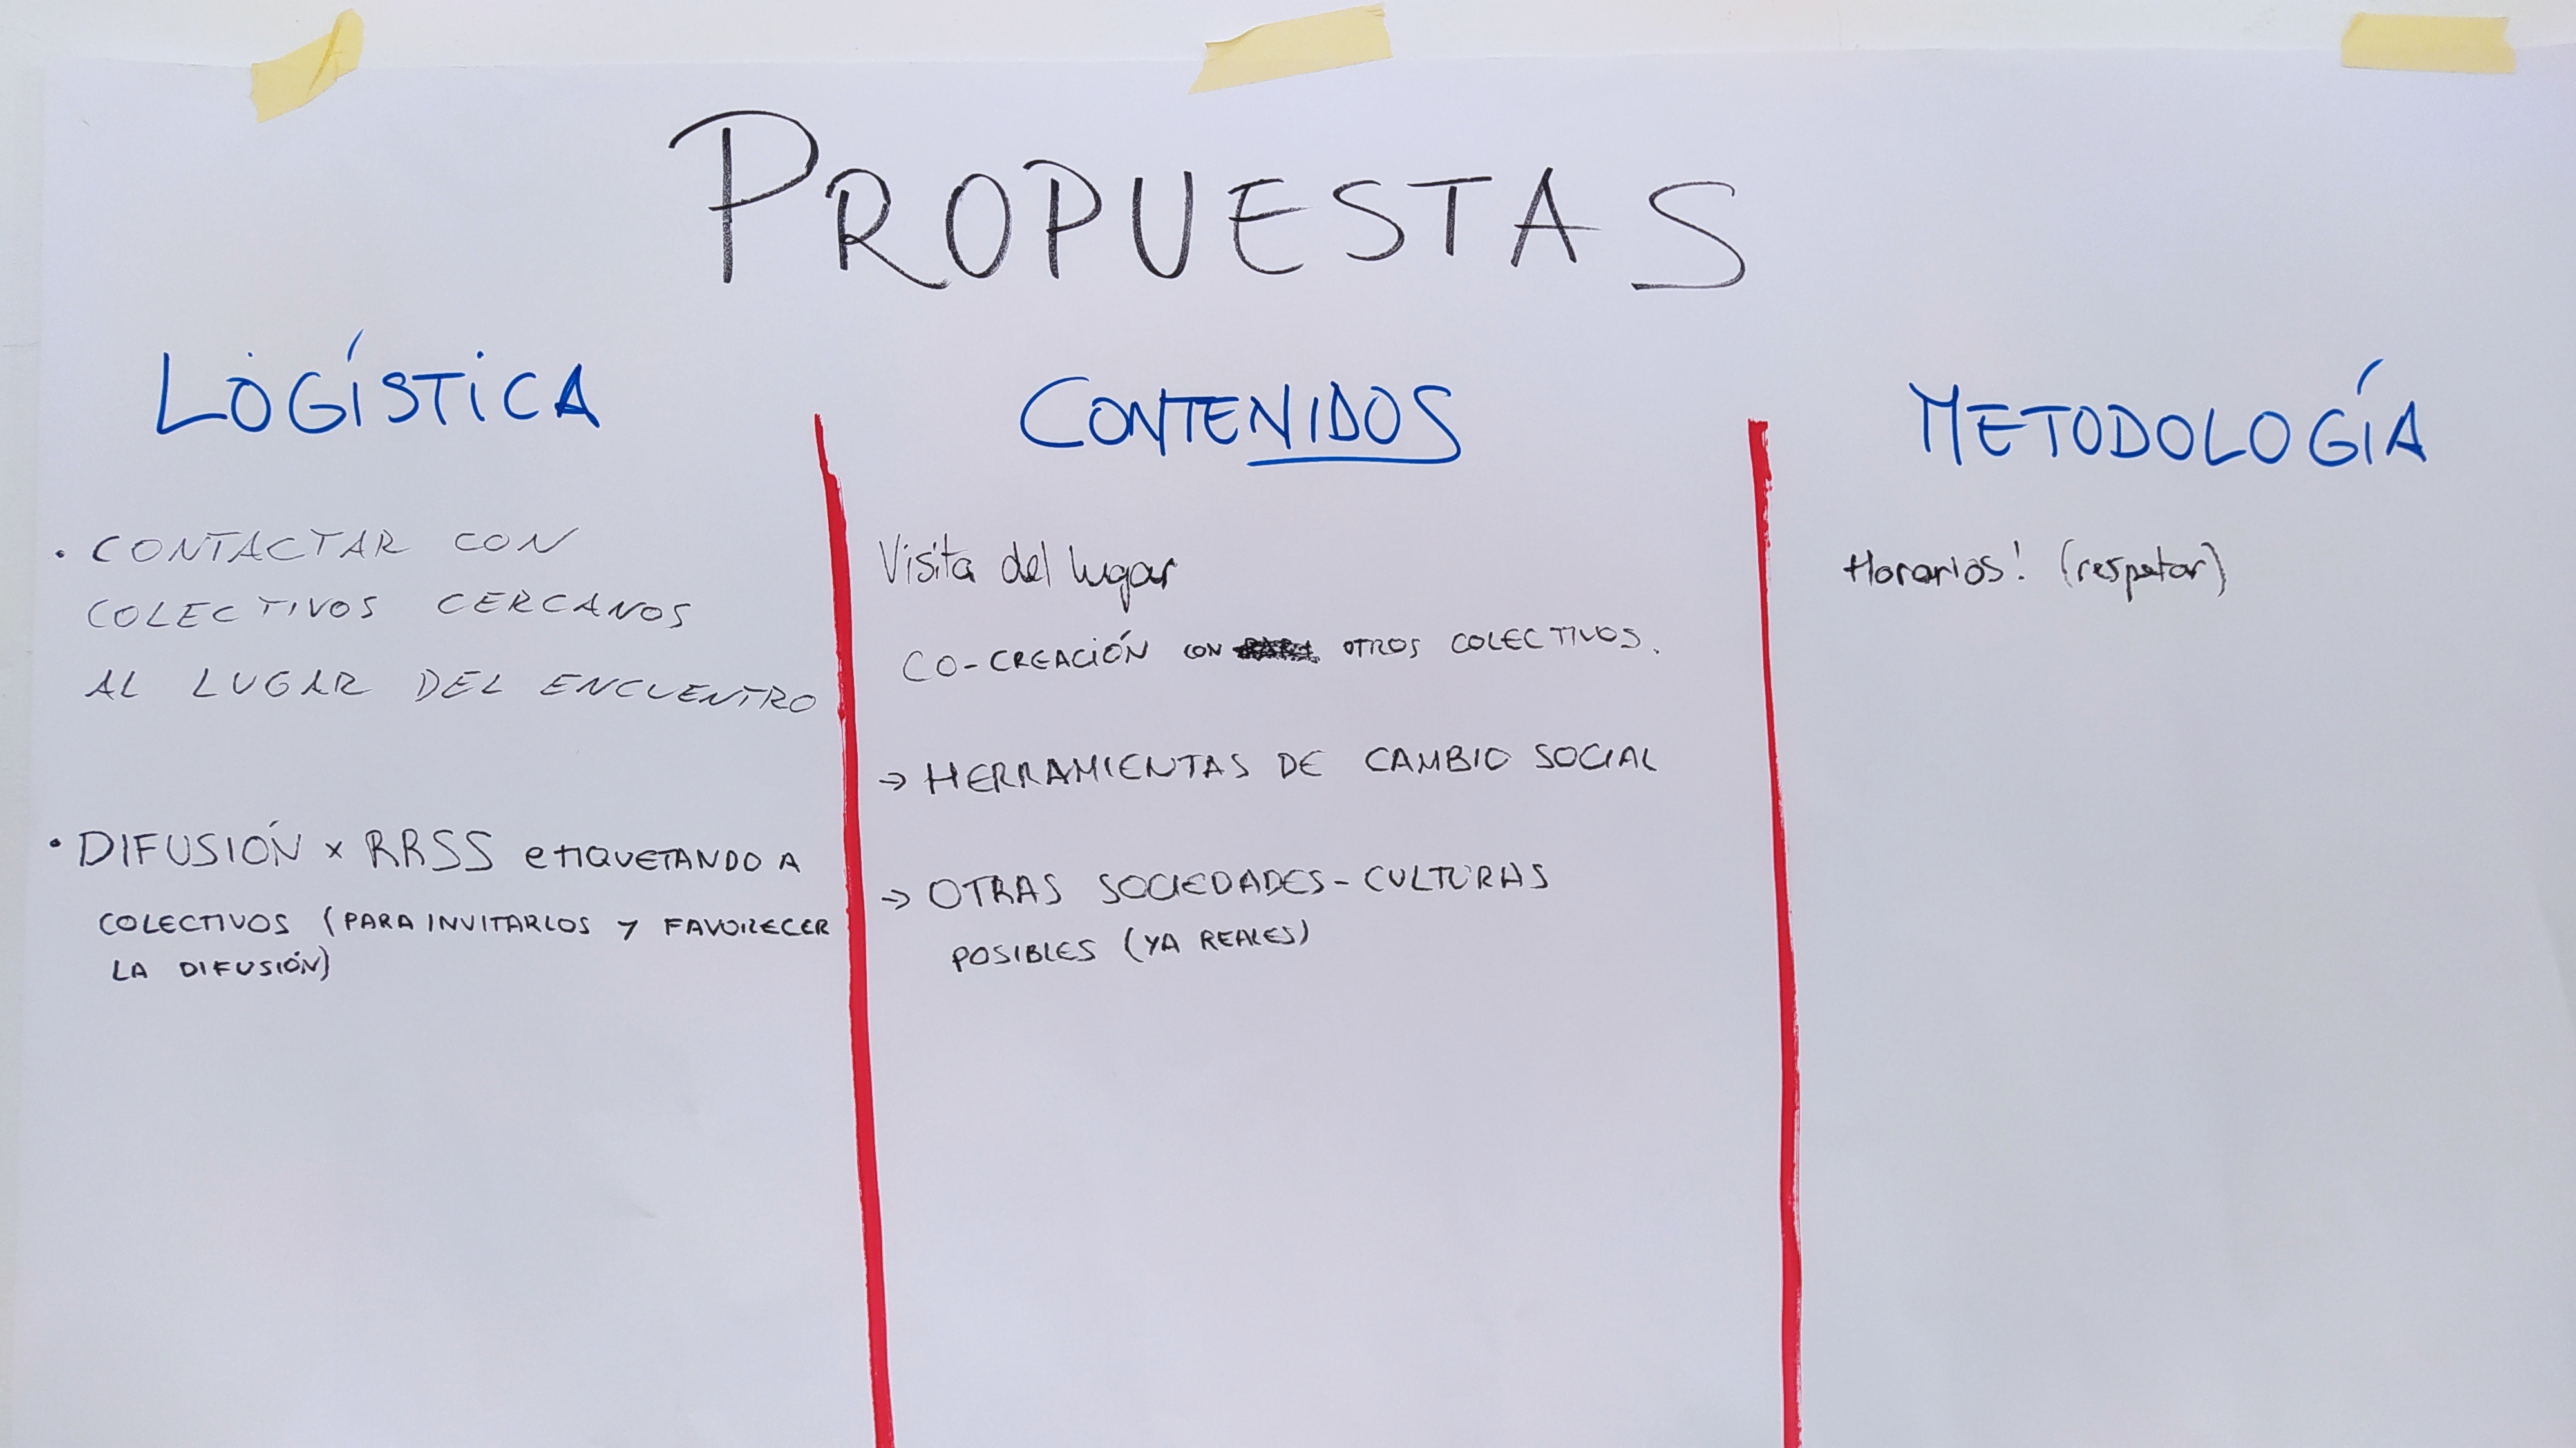 PROPUESTAS
LOGÍSTICA
• CONTACTAR CON
COLECTIVOS CERCANOS
AL LUGAR DEL ENCUENTRO
• DIFUSIÓN x RRSS etiQUETANDO A
COLECTIVOS (PARA INVITARLOS Y FAVORECER
LA DIFUSIÓN)
CONTENIDOS
Visita del lugar
CO-CREACIÓN CON OTROS COLECTIVOS.
→ HERRAMIENTAS DE CAMBIO SOCIAL
→ OTRAS SOCIEDADES - CULTURAS
POSIBLES (YA REALES)
METODOLOGÍA
Horarios! (respetar)